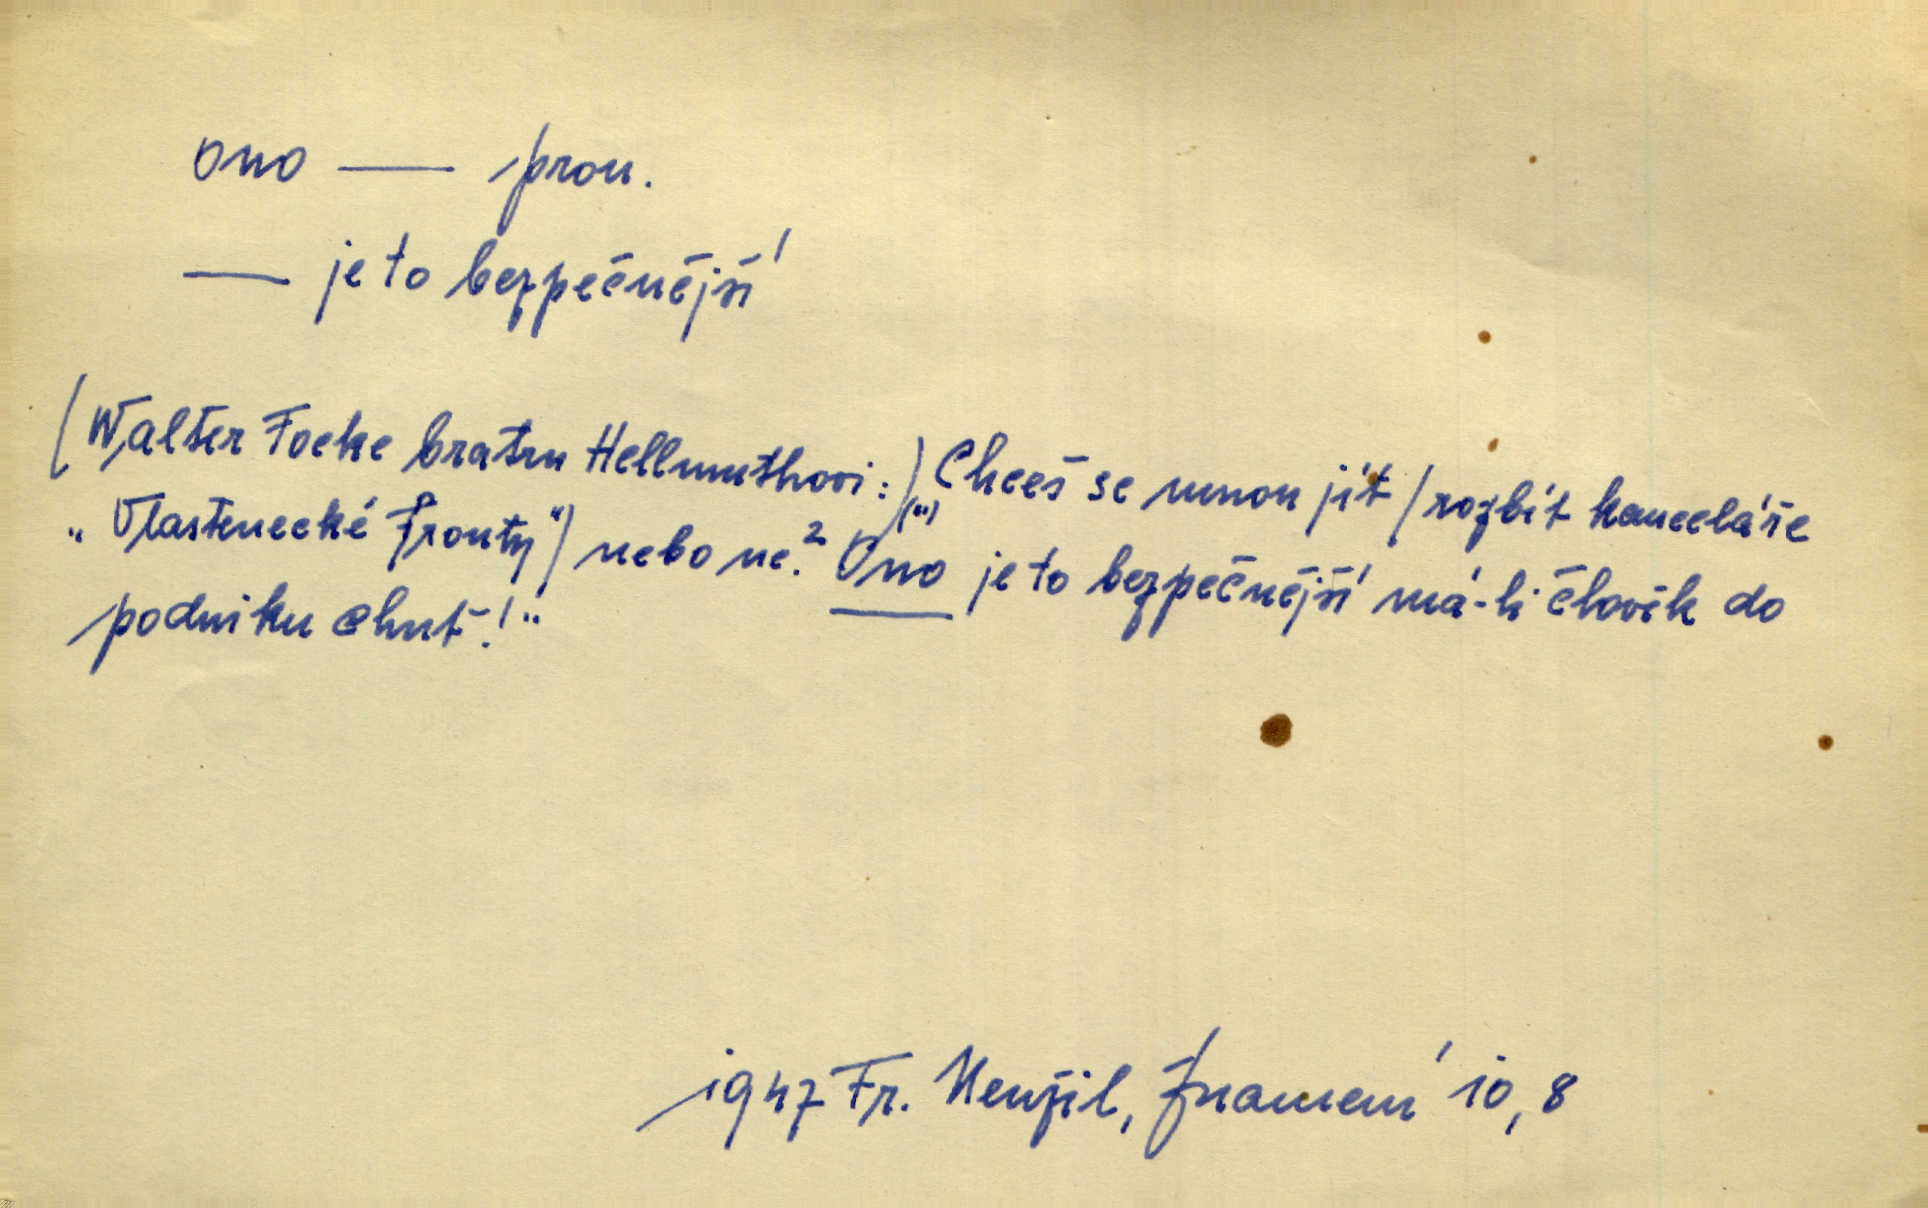 ono — pron.
— je to bezpečnější
(Walter Focke bratru Hellmuthovi:) („) Chceš se mnou jít / rozbít kanceláře
„Vlastenecké fronty“) nebo ne? Ono je to bezpečnější má-li člověk do
podniku chuť!“
1947 Fr. Neužil, Znamení 10, 8